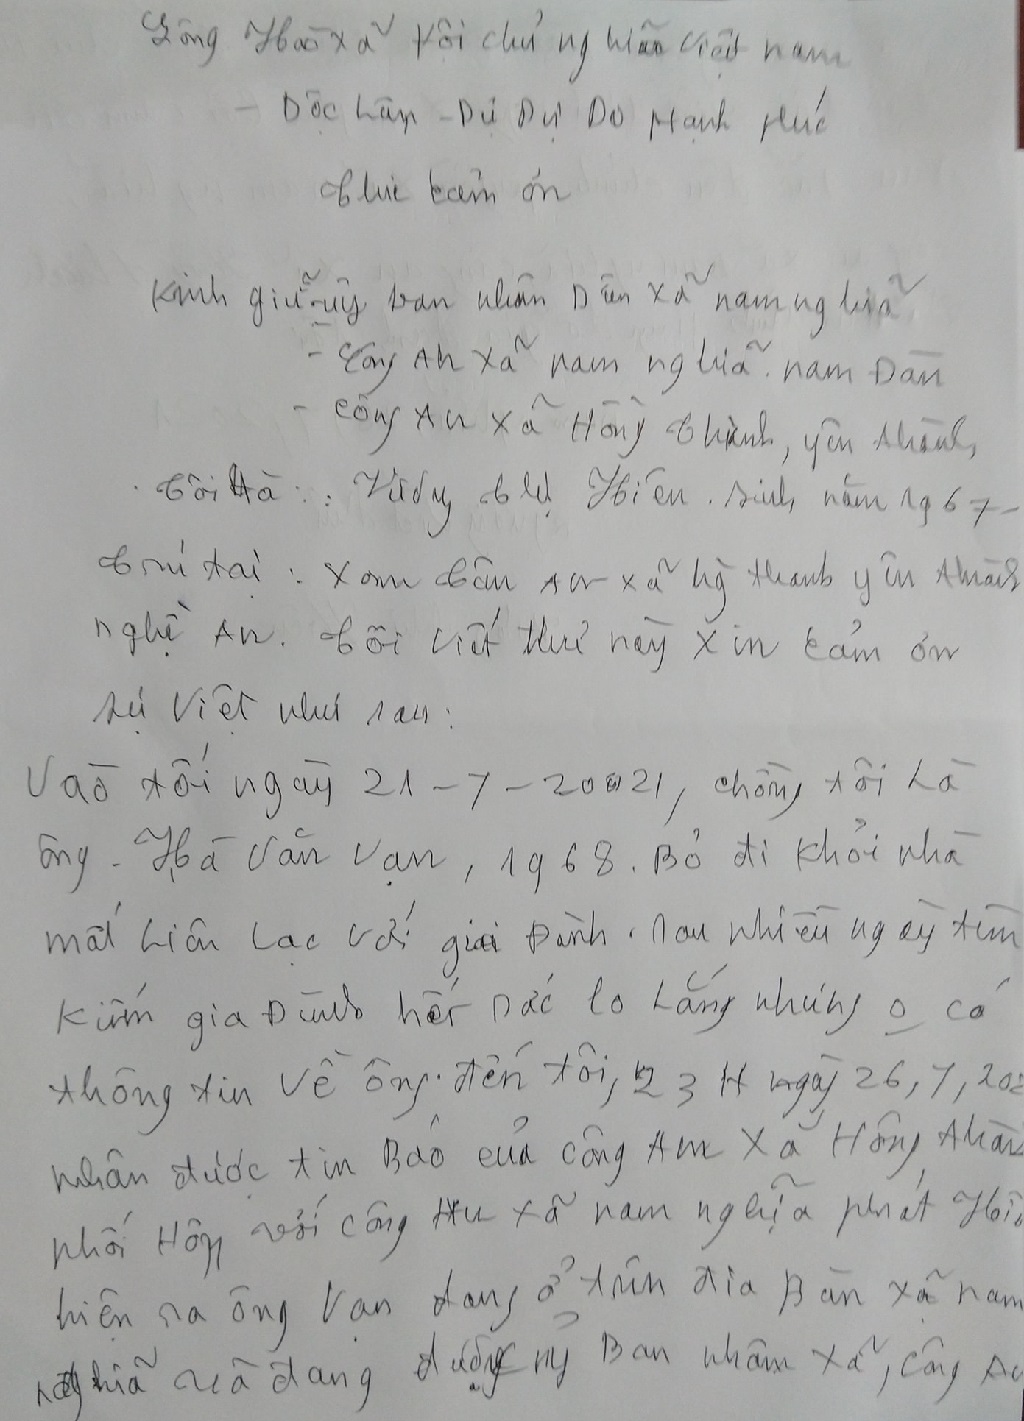 Cộng Hoà xã hội chủ nghĩa Việt nam
- Độc Lập - Tự Do Hạnh Phúc
Thư cảm ơn
Kính gửi ủy ban nhân Dân xã nam nghĩa
- Công An xã nam nghĩa. nam Đàn
- Công An xã Hồng Thành, yên thành,
Tôi là: Thị Hiền. sinh năm 1967-
Trú tại: xóm Tân An xã hg thành yên thành
nghệ An. Tôi viết thư này xin cảm ơn
sự việt như sau:
Vaò tối ngày 21-7-20021, chồng tôi Là
ông. Hà Văn Vạn, 1968. Bỏ đi khỏi nhà
mất Liên Lạc với gia Đình. sau nhiều ngày tìm
kiếm gia Đình hết sức lo Lắng nhưng 0 có
thông tin về ông. đến tối, 23 H ngày 26, 7, 202
nhận được tin Báo của công An xã Hồng thành
phối Hợp với công An xã nam nghĩa phát
hiện ra ông Vạn đang ở trên địa Bàn xã nam
nghĩa và đang được uỷ Ban nhân xã, công An